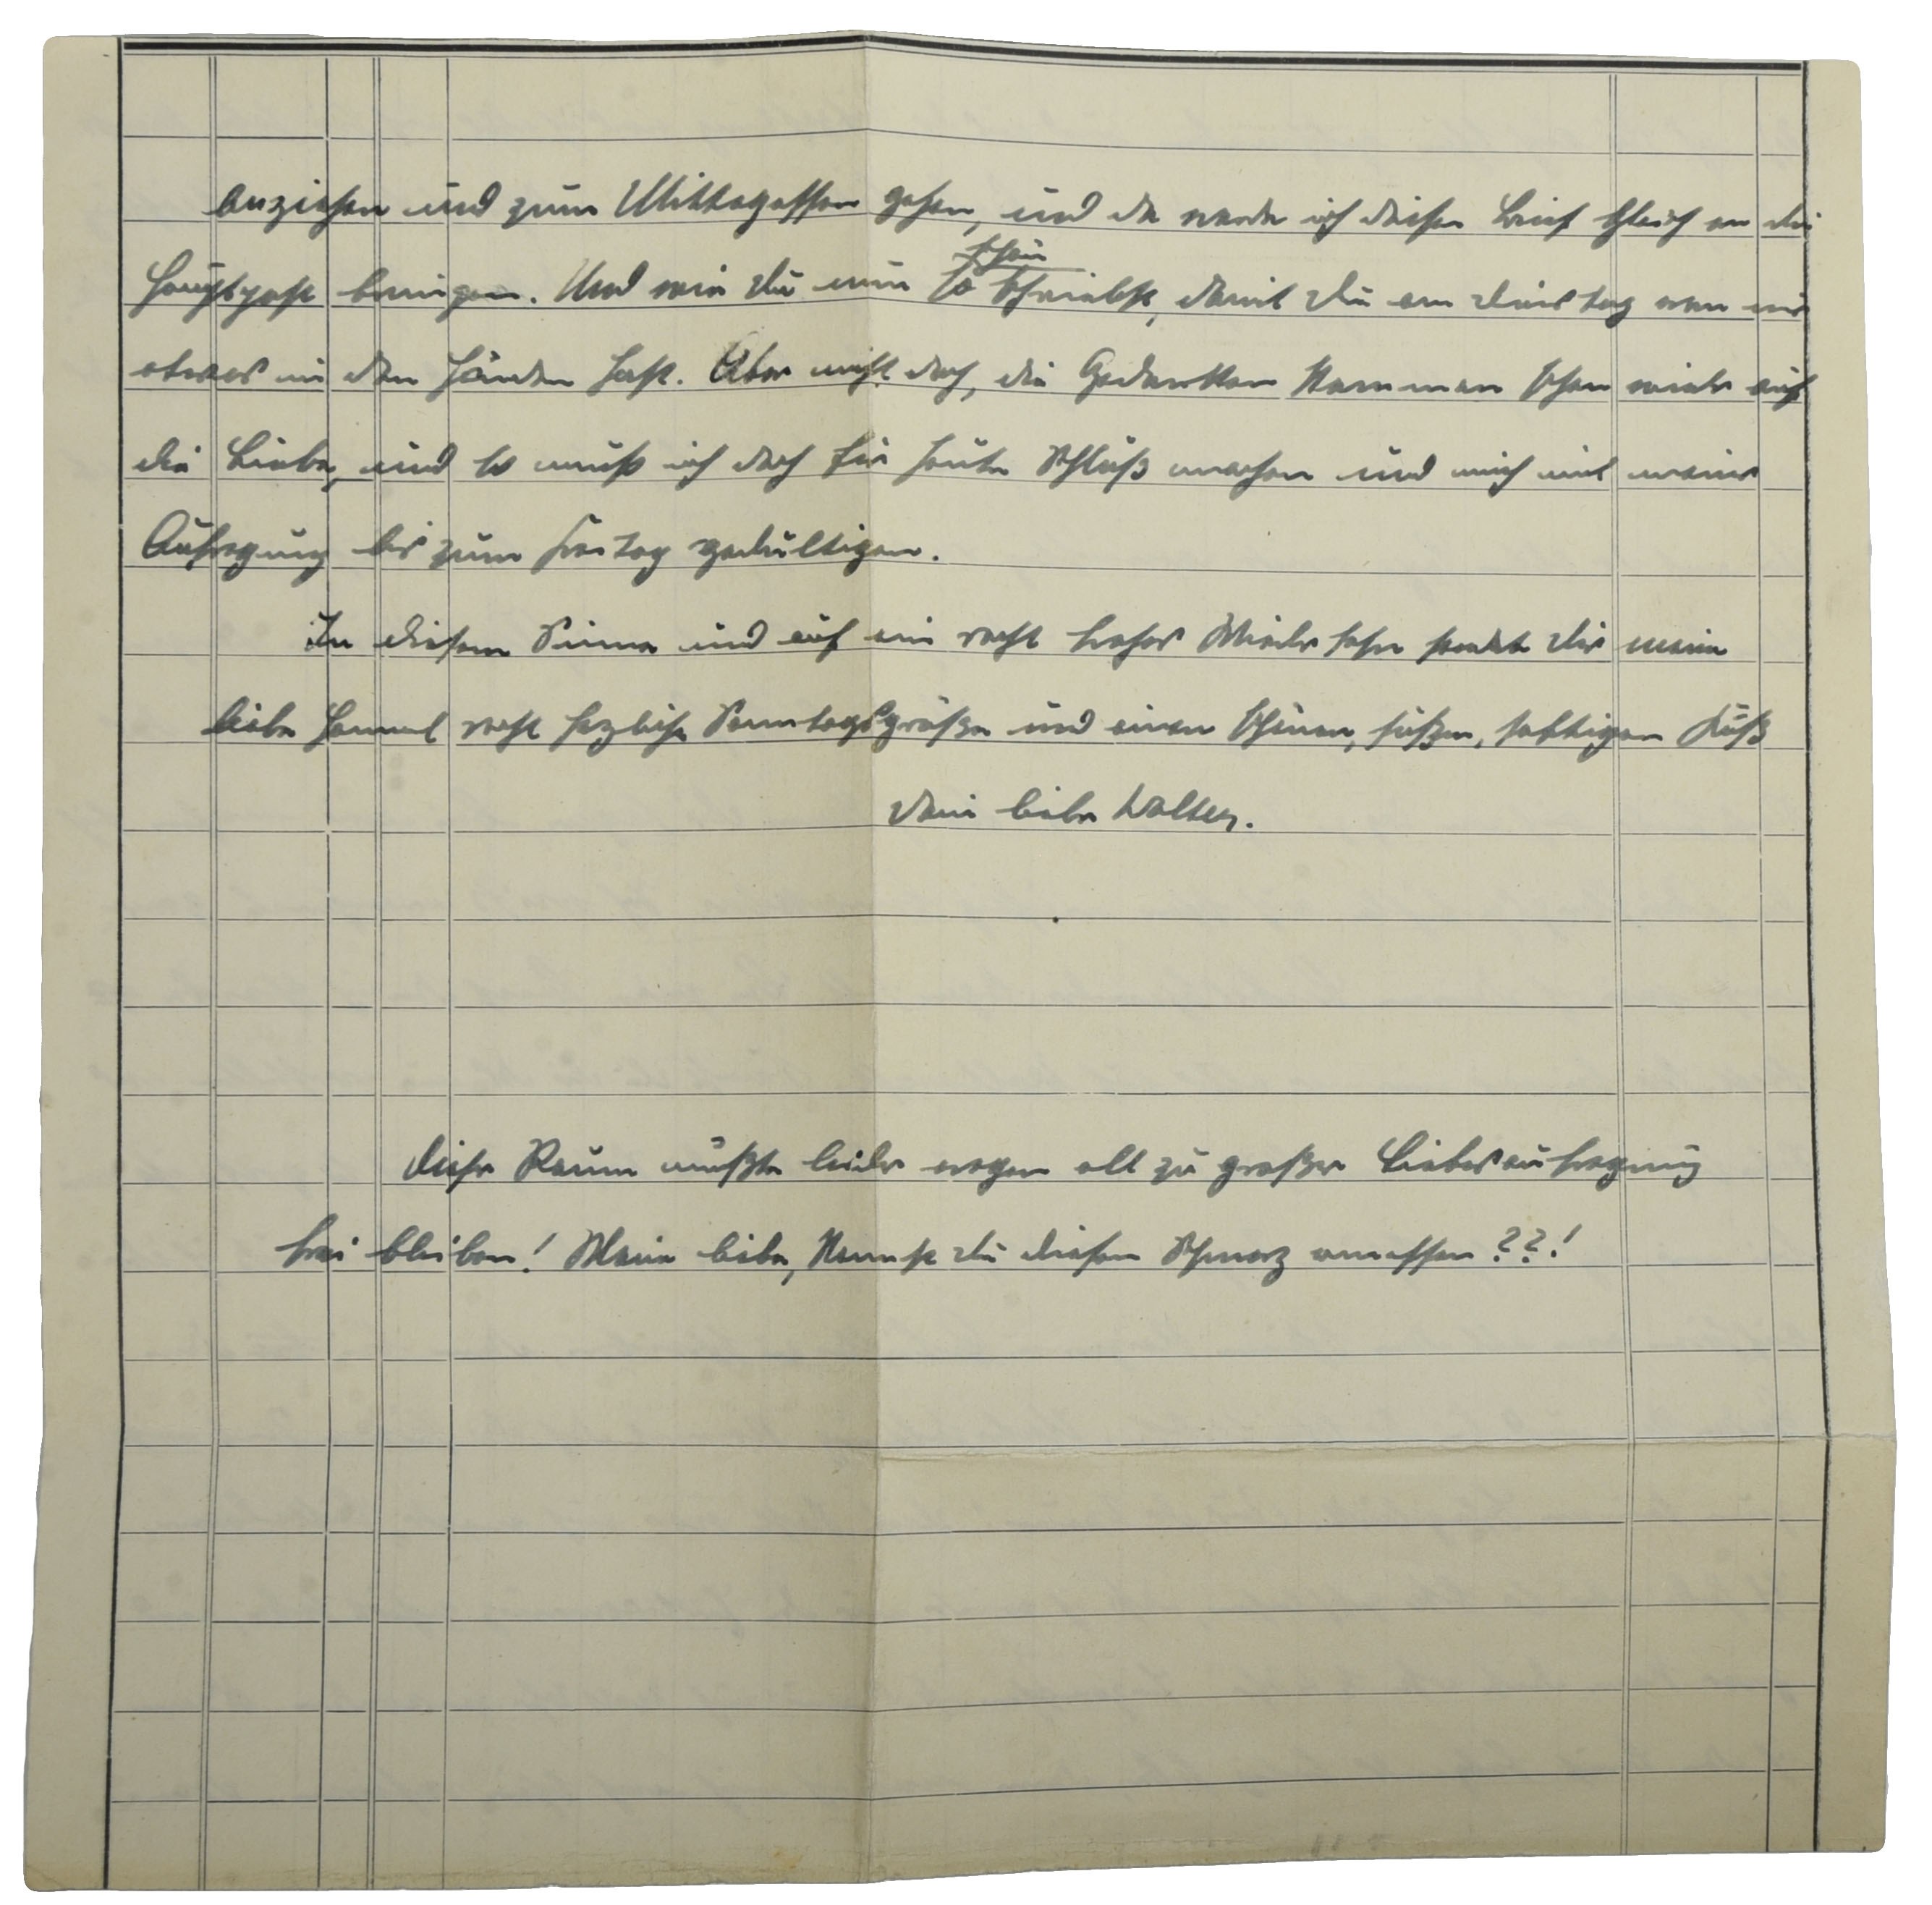 anziehen und zum Mittagessen gehen, und da werde ich diesen Brief gleich an die
Hauptpost bringen. Und wie Du nun so schön schriebst, damit Du am Dienstag von mir
etwas in den Händen hast. Aber nicht doch, die Gedanken kommen schon wieder auf
die Liebe, und so muß ich doch für heute Schluß machen und mich mit meiner
Aufregung bis zum Freitag gedultigen.
In diesem Sinne und auf ein recht frohes Wiedersehn sendet Dir mein
liebe Hannel recht herzliche Sonntagsgrüße und einen schönen, süßen, saftigen Kuß
Dein lieber Walter.
Dieser Raum mußte leider wegen all zu großer Liebesaufregung
frei bleiben! Meine liebe, kannst Du diesen Schmerz ermessen??!